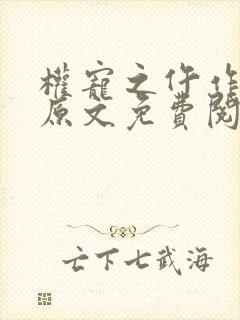 權寵之仵作
原文免費閱
亡下七武海